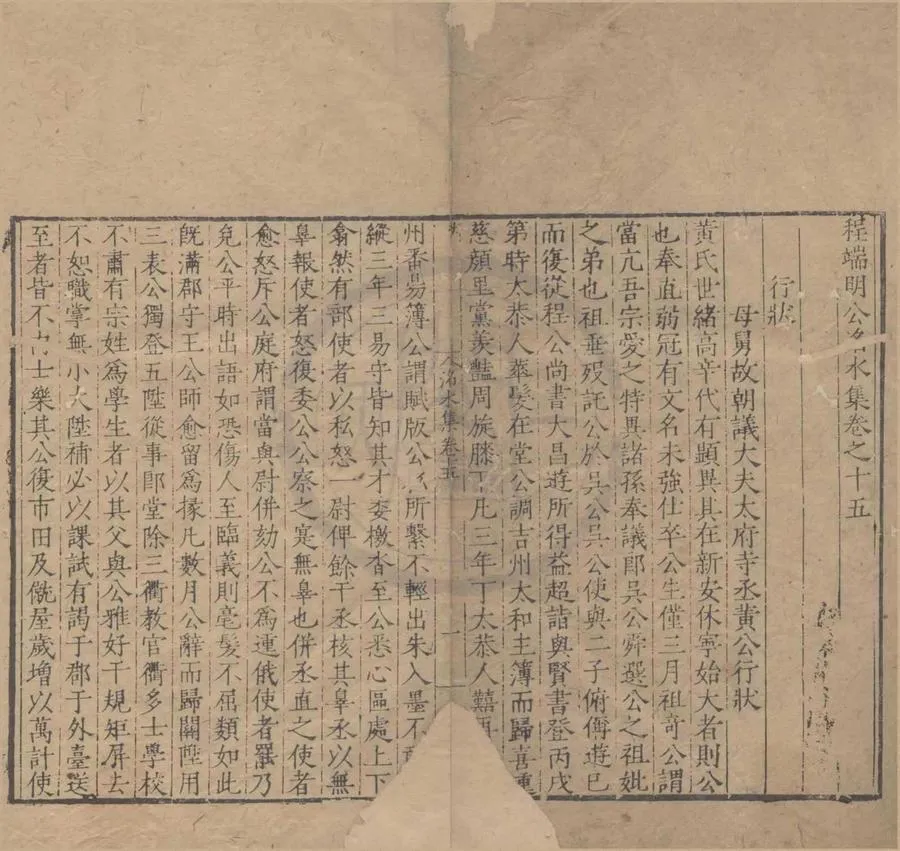 程端明公洺水集卷之十五
行狀
母舅故朝議大夫太府寺丞黃公行狀
黃氏世緒高辛代有顯異其在新安休寧始大者則公
也奉直弱冠有文名未強仕卒公生僅三月祖奇公謂
當亢吾宗愛之特異諸孫奉議郎吳公舜選公之祖妣
之弟也祖垂歿託公於吳公吳公使與二子俯傅遊已
而復從程公尚書大昌遊所得益超詣與賢書登丙戌
第時太恭人華髮在堂公調吉州太和主簿而歸喜重
慈顏里黨羨豔周旋膝下凡三年丁太恭人囏
洺水集卷十五
一
州番昜簿公謂賦版公所繫不輕出朱入墨不
縱三年三易守皆知其才委檄沓至公悉心區處上下
翕然有部使者以私怒一尉俾餘干丞核其辠丞以無
辠報使者怒復委公公察之寔無辠也併丞直之使者
愈怒斥公庭府謂當與尉併劾公不爲連俄使者罷乃
免公平時出語如恐傷人至臨義則毫髮不屈類如此
旣滿郡守王公師愈留爲掾凡數月公辭而歸關陞用
三表公獨登五陞從事郎堂除三衢教官衢多士學校
不肅有宗姓爲學生者以其父與公雅好干規矩屏去
不恕職掌無小大陞補必以課試有謁于郡于外臺送
至者皆不士樂其公復市田及僦屋歲增以萬計使